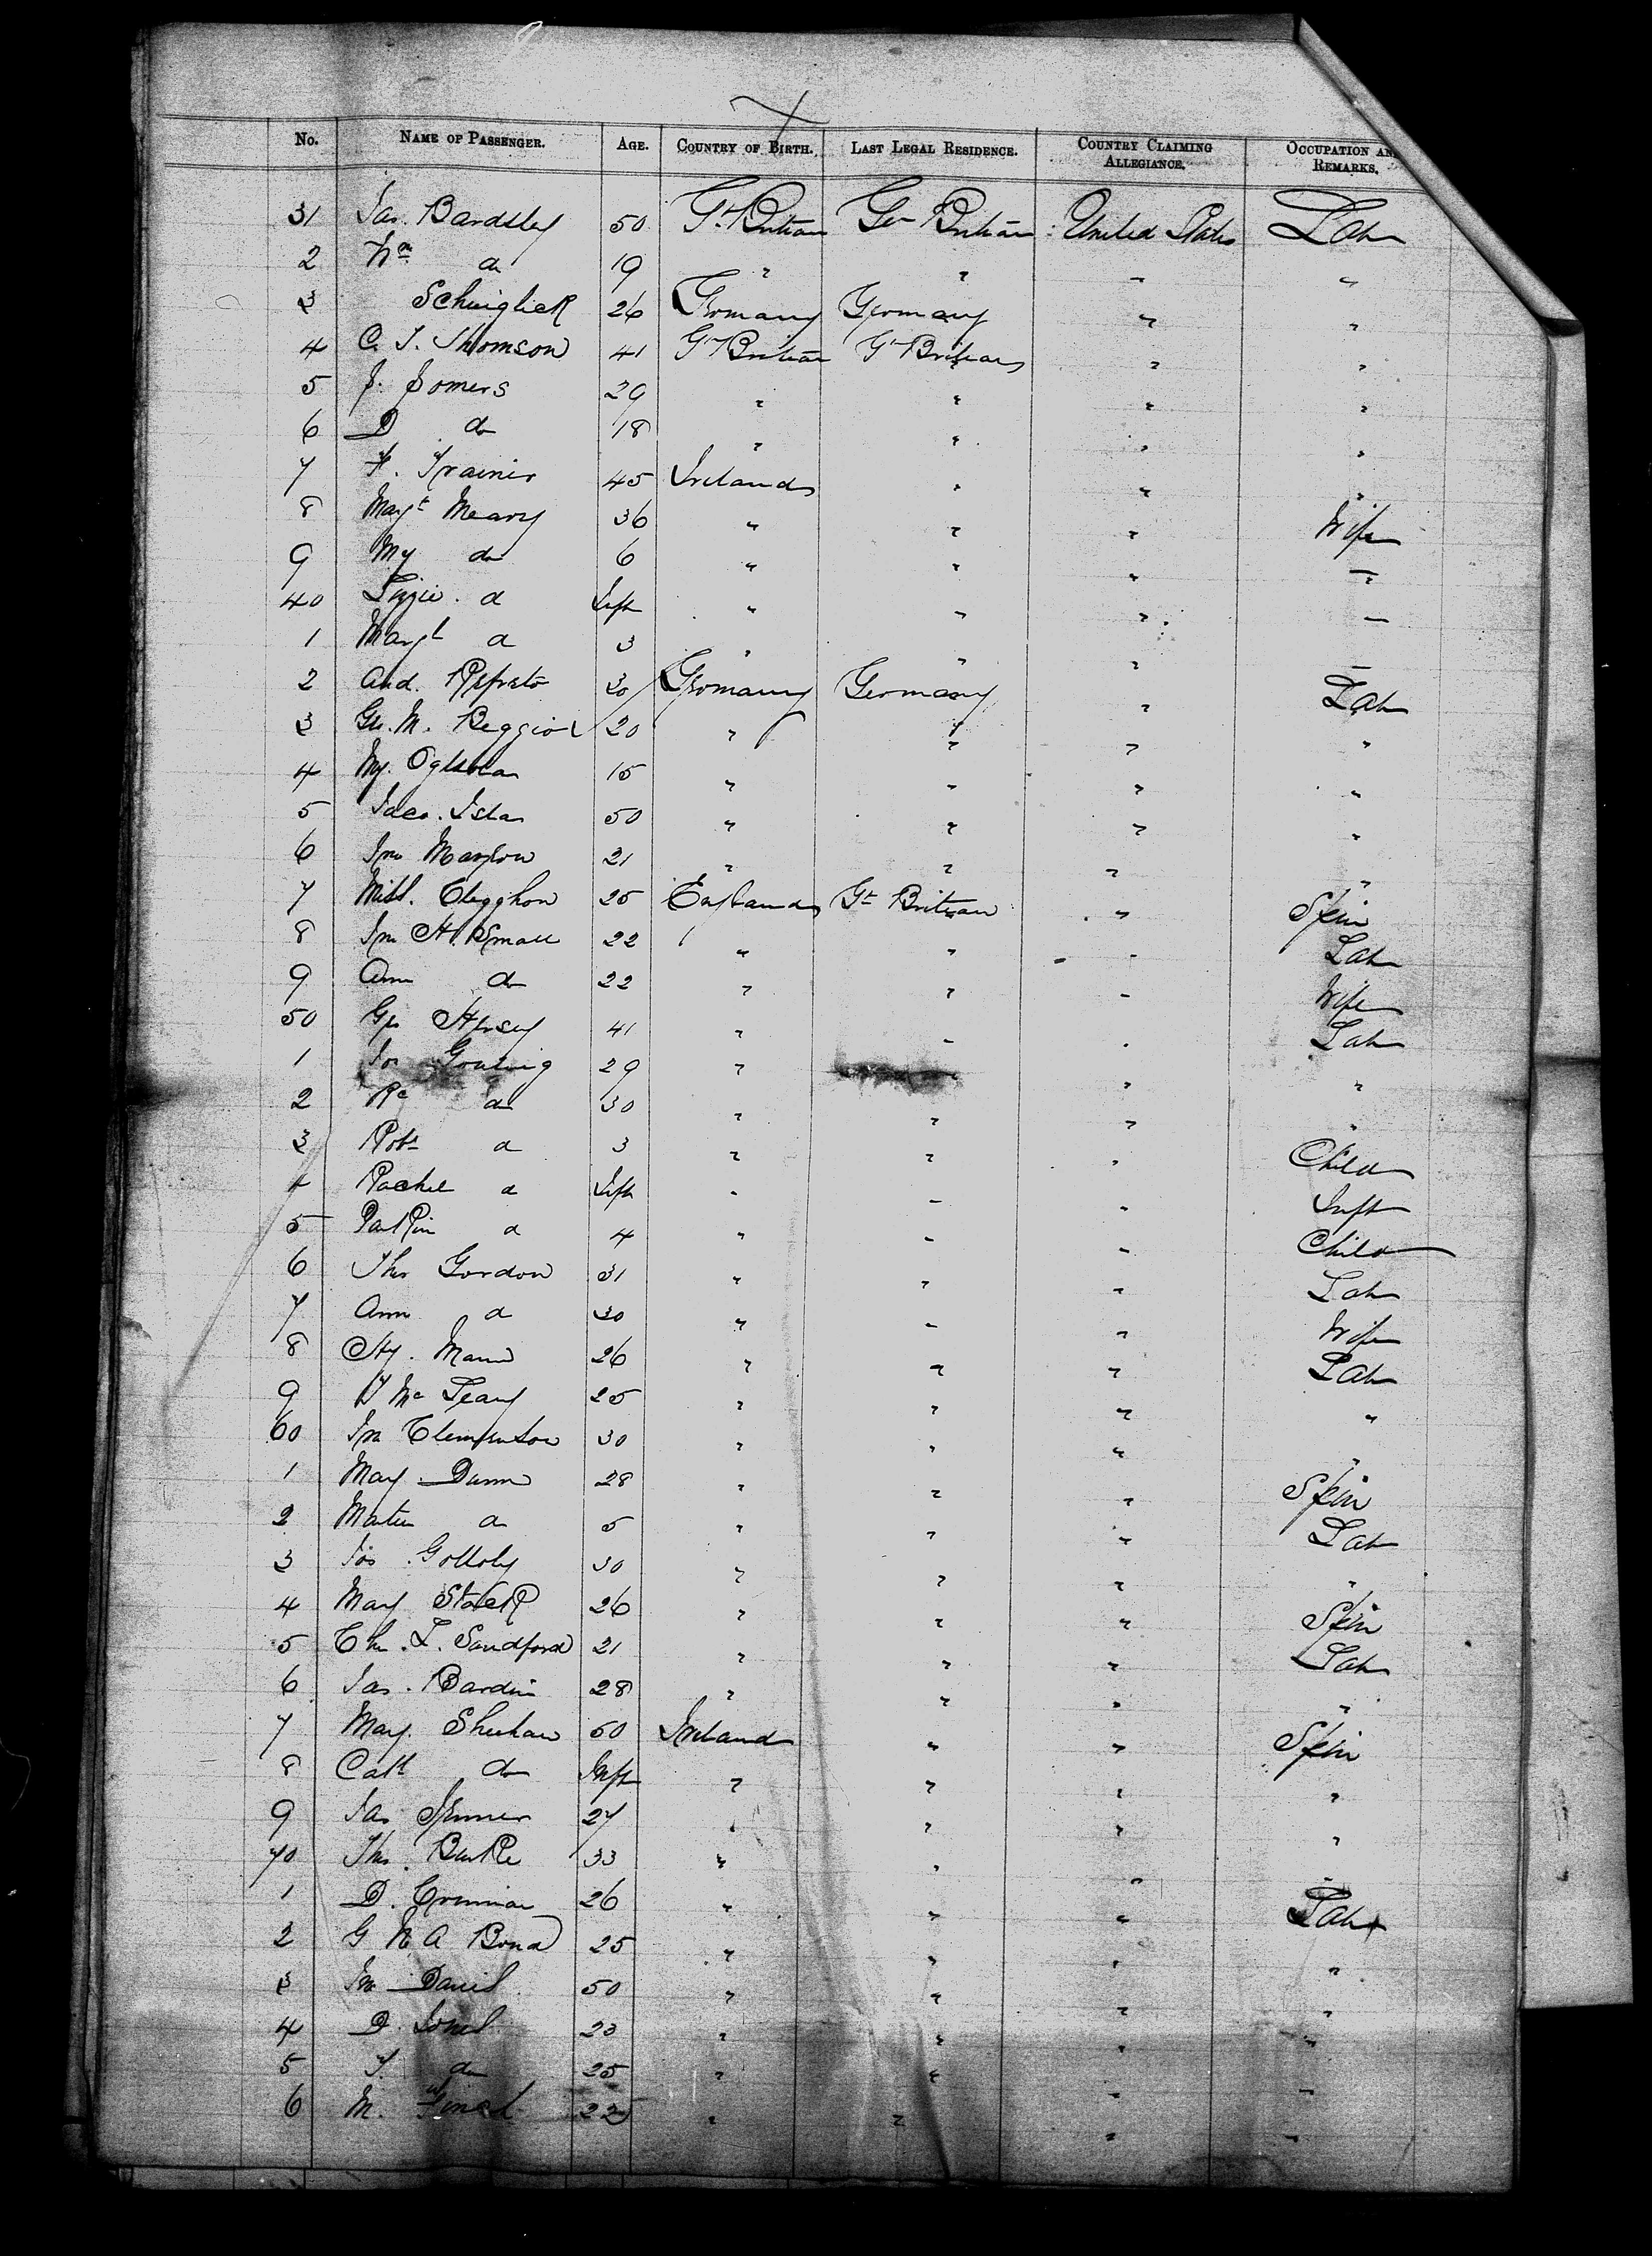 No. NAME OF PASSENGER. AGE. COUNTRY OF BIRTH. LAST LEGAL RESIDENCE. COUNTRY CLAIMING ALLEGIANCE. OCCUPATION AN REMARKS.
31 Jas. Bardsley 50 Gt Britian Gt Britian United States Lab
2 Wm do 19 " " " "
3 26 Germany Germany " "
4 C. T. Thomson 41 Gt Britian Gt Britian " "
5 J. Somers 29 " " " "
6 D do 18 " " " "
7 F. Trainer 45 Ireland " " "
8 Margt Meary 36 " " " Wife
9 My do 6 " " " "
40 Lizzie. do Inft " " " —
1 Margt do 3 " " " —
2 And. 30 Germany Germany " Lab
3 Geo. M. 20 " " " "
4 My. 15 " " " "
5 50 " " " "
6 Jno 21 " " " "
7 Miss. Clegghon 25 England Gt Britian " Spin
8 Jno H. Small 22 " " " Lab
9 Ann do 22 " " " Wife
50 Geo Hersey 41 " " " Lab
1 Jos Gowing 29 " " "
2 do 30 " " " "
3 Robt do 3 " " " Child
4 Rachel do Inft " " " Inft
5 Parkin do 4 " " " Child
6 Thos Gordon 31 " " " Lab
7 Ann do 30 " " " Wife
8 Hy. Mann 26 " " " Lab
9 Mc Leary 25 " " " "
60 Jno Clempenson 30 " " " "
1 Mary Dunn 28 " " " Spin
2 Martin do 5 " " " Lab
3 Jos 30 " " " "
4 Mary Stack 26 " " " Spin
5 Chs. L. Sandford 21 " " " Lab
6 Jas. Bardin 28 " " " "
7 Mary. Sheehan 50 Ireland " " Spin
8 Cath do Inft " " " "
9 Jas 27 " " " "
70 Thos. Burke 33 " " " "
1 D. Crimmian 26 " " " Lab
2 G N A Bond 25 " " " "
3 Jno Davis 50 " " " "
4 D. Jones 23 " " " "
5 T. do 25 " " " "
6 M. 22 " " " "